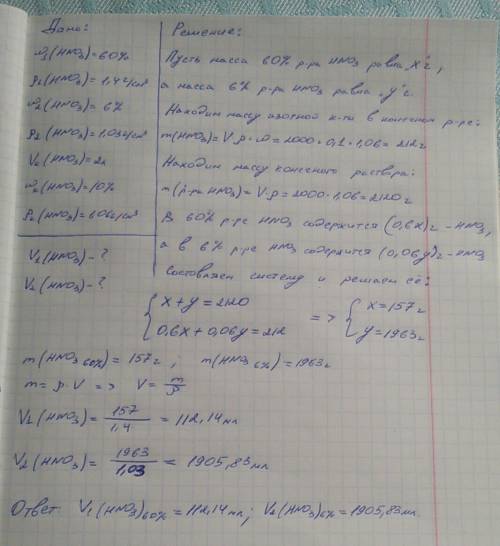 Дано:
ω₁(HNO₃)=60%
ρ₁(HNO₃)=1,4г/см³
ω₂(HNO₃)=6%
ρ₂(HNO₃)=1,03г/см³
V₃(HNO₃)=2л
ω₃(HNO₃)=10%
ρ₃(HNO₃)=1,06г/см³
V₁(HNO₃)-?
V₂(HNO₃)-?
Решение:
Пусть масса 60% р-ра HNO₃ равна "x" г,
а масса 6% р-ра HNO₃ равна "y" г.
Находим массу азотной к-ты в конечном р-ре:
m(HNO₃)=V·ρ·ω=2000·0,1·1,06=212г
Находим массу конечного раствора:
m(р-ра HNO₃)=V·ρ=2000·1,06=2120г
В 60% р-ре HNO₃ содержится (0,6x)г-HNO₃,
а в 6% р-ре HNO₃ содержится (0,06y)г-HNO₃
Составляем систему и решаем её:
{ x+y=2120 => { x=157г
0,6x+0,06y=212 y=1963г
m(HNO₃ 60%)=157г; m(HNO₃ 6%)=1963г
m=ρ·V => V=m/ρ
V₁(HNO₃)=157/1,4=112,14мл
V₂(HNO₃)=1963/1,03=1905,83мл
Ответ: V₁(HNO₃)60%=112,14мл; V₂(HNO₃)6%=1905,83мл.